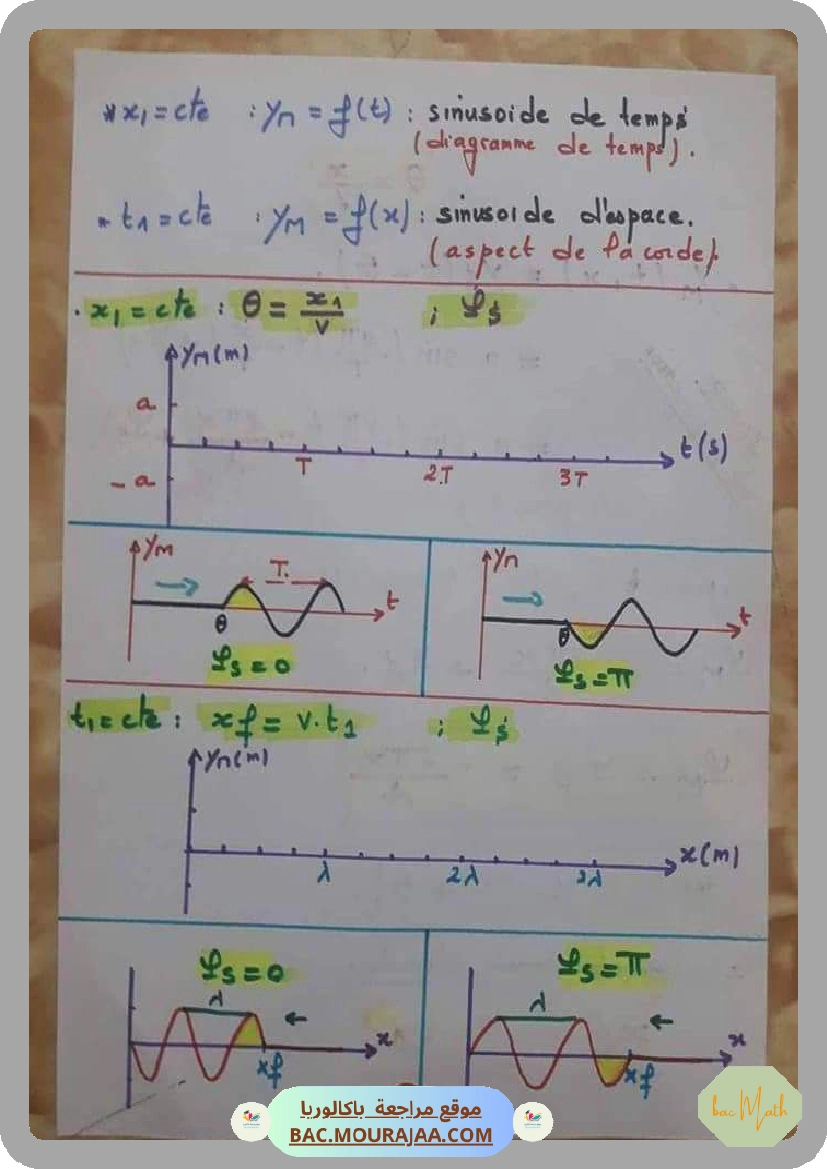 * x₁ = cte : yM = f(t) : sinusoide de temps
(diagramme de temps).
* t₁ = cte : yM = f(x) : sinusoide d'espace.
(aspect de la corde).
. x₁ = cte : θ = x₁/v ; φs
yM(m)
a
t(s)
T 2T 3T
- a
yM T. t
θ
φs = 0
yM t
θ
φs = π
t₁ = cte : xf = v.t₁ ; φs
yM(m)
x(m)
λ 2λ 3λ
φs = 0
λ
x
xf
φs = π
λ
x
xf
موقع مراجعة باكالوريا
BAC.MOURAJAA.COM
bac Math